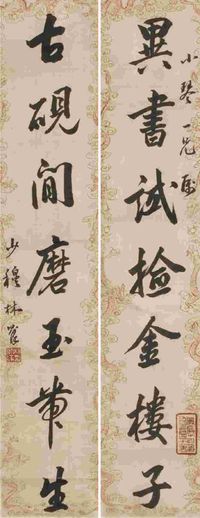 異書試撿金樓子
小琴一兄屬
古硯閒磨玉帶生
少穆林